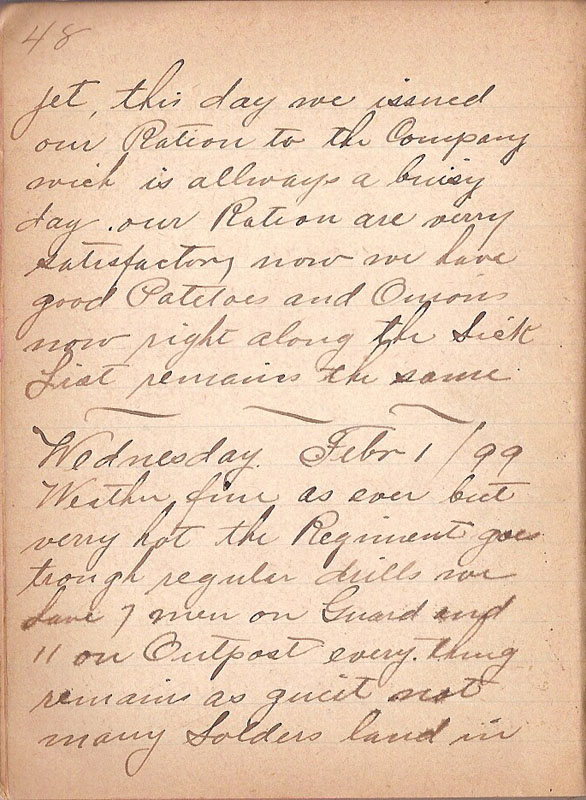 48
jet, this day we issued
our Ration to the Company
wich is allways a buisy
day. our Ration are verry
satisfactory now we have
good Patetoes and Onions
now right along the Sick
List remains the same
Wednesday. Febr 1/99
Weather fine as ever but
verry hot the Regiment goes
trough regular drills we
have 7 men on Guard and
11 on Outpost every thing
remains as quiit not
many Solders land in